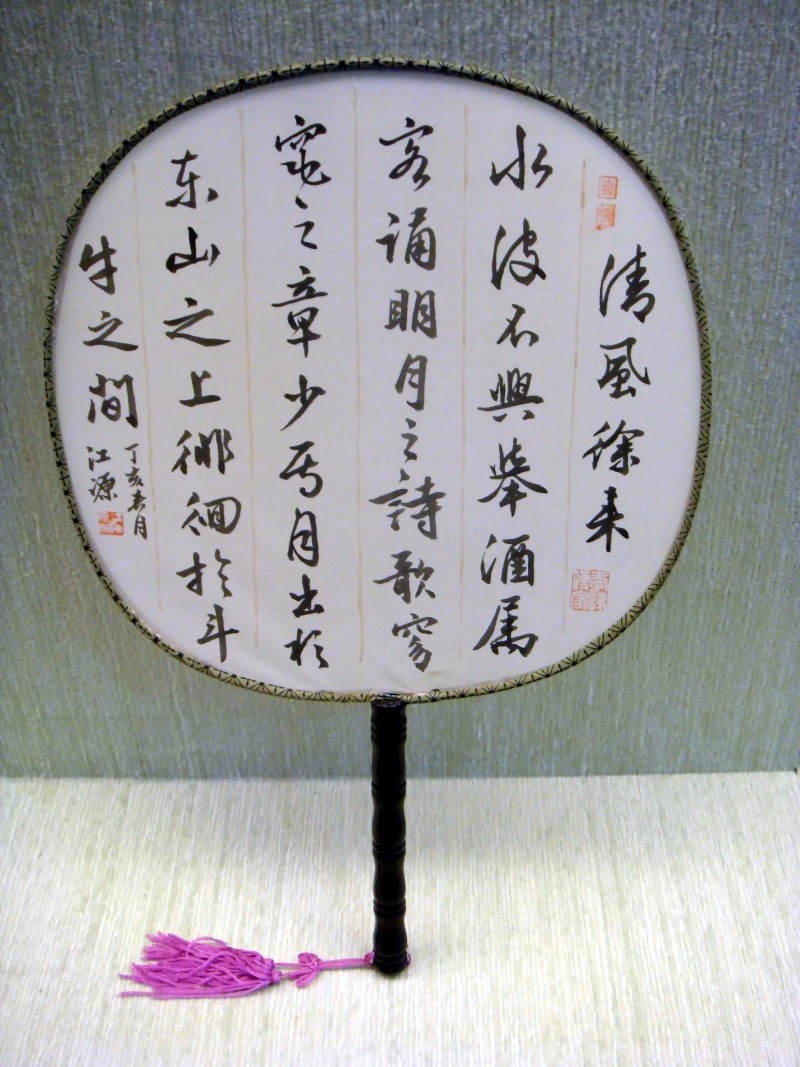 清風徐来
水波不興舉酒属
客诵明月之詩歌窈
窕之章少焉月出於
东山之上徘徊於斗
牛之間
丁亥春月
江源